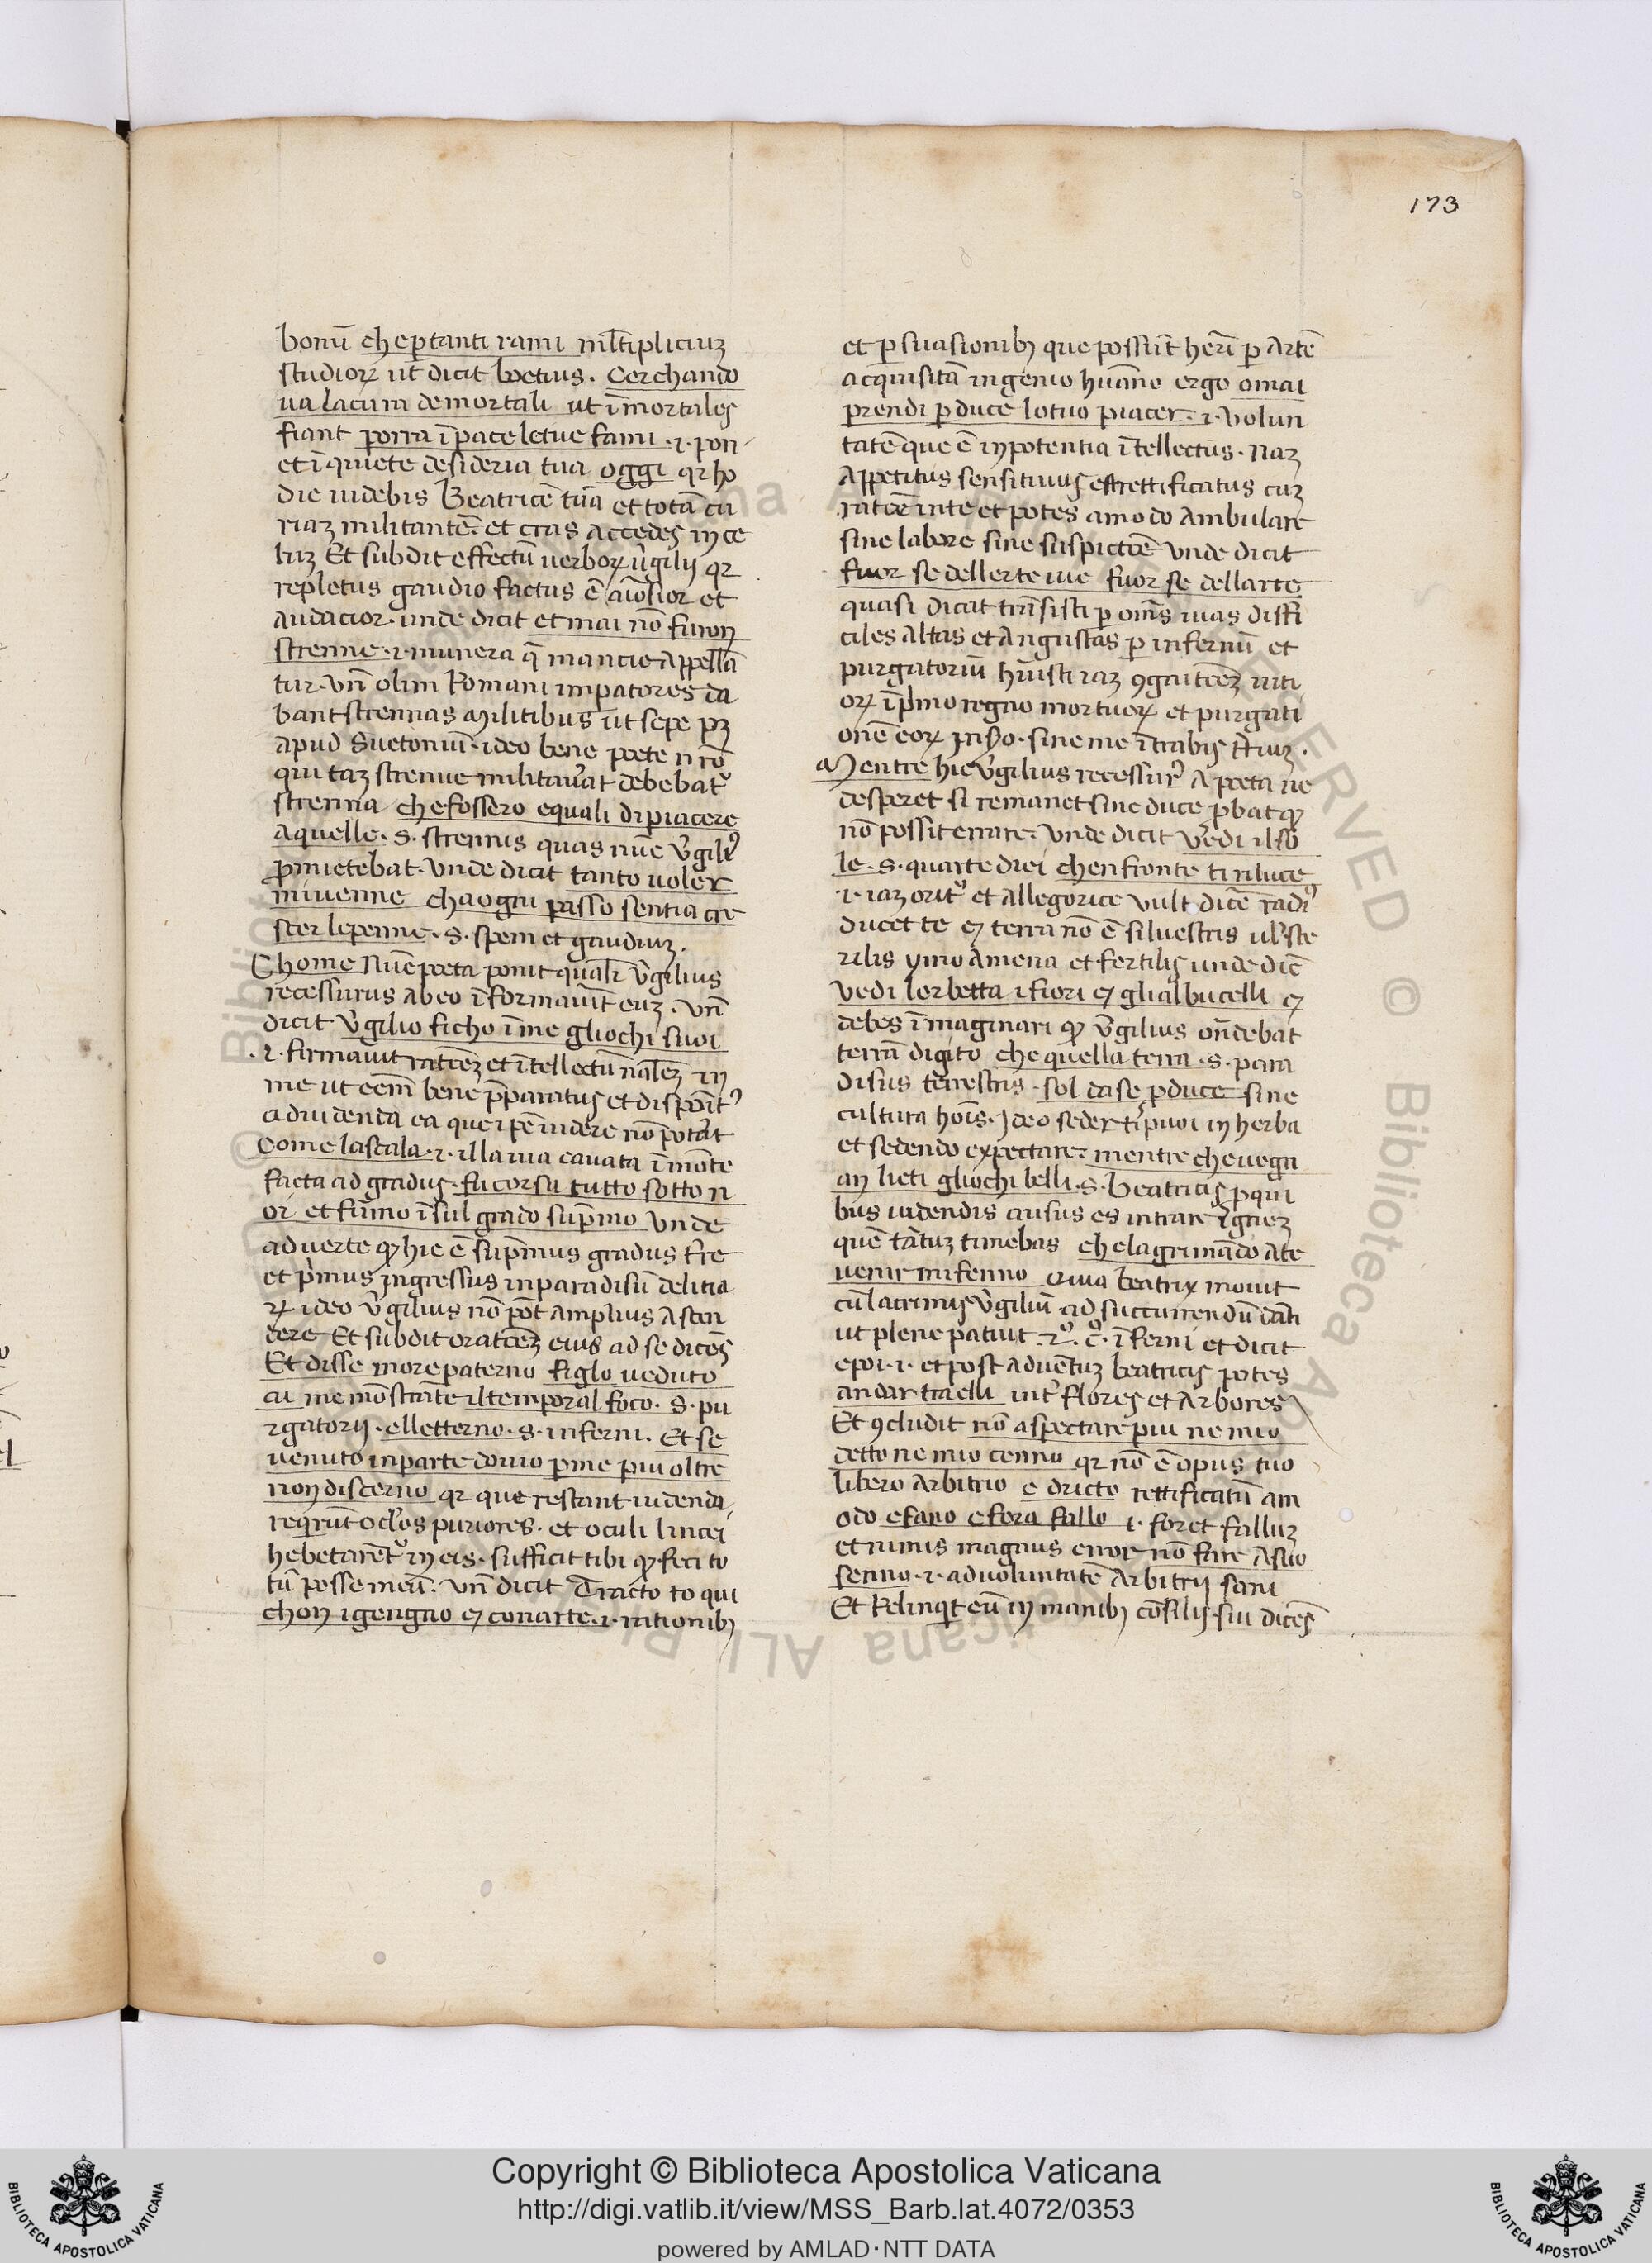 173
bonū che ꝑ tanti rami m̄ltiplicium
studioꝝ ut dicit boetius. Cerchando
ua la cura de mortali ut ī mortales
fiant porra ī pace le tue fami .i. pon
et ī quiete desideria tua oggi qꝛ ho
die uidebis Beatricē tuā et totā cu
riaz militantē. et cras accedes in ce
luz Et subdit effectū uerboꝝ v̓gilij qꝛ
repletus gaudio factus ē aīosior et
audacior. unde dicit et mai nō furon
strenne .i. munera q̄ mancie appellā
tur. vn̄ olim Romani imꝑatores da
bant strennas militibus ut sepe pꝫ
apud Suetoniū. ideo bene poete nr̄o
qui taz strenue militau̓at debebat᷒
strenna che fossero equali di piacere
a quelle .s. strennis quas nūc v̓gili᷒
ꝓmictebat. vnde dicit tanto uoler
mi uenne cha ogni passo sentia cre
scer le penne .s. spem et gaudiuz.
Chome Nūc poeta ponit qualr̄ v̓gilius
recessurus ab eo īformauit euz. vn̄
dicit v̓gilio ficho ī me gliochi suoi
.i. firmauit ratōeꝫ et ītellectū nālez in
me ut eem̄ bene p̄paratus et disposit᷒
ad uidenda ea que ipē uidere nō pot̓at
Come la scala .i. illa uia cauata ī mōte
facta ad gradus. fu corsa tutto sotto n
oi et fūmo ī sul grado sup̄mo vnde
aduerte ꝙ hic ē sup̄mus gradus tr̄re
et p̓mus ingressus in paradisū delitia
ꝝ ideo v̓gilius nō pōt amplius ascen
dere Et subdit oratōeꝫ eius ad se dicēs
Et disse more paterno figlo ueduto
ai me mōstrāte il temporal foco .s. pu
rgatorij. elletterno .s. inferni. Et se
uenuto in parte douio ꝑ me piu oltre
non discerno qꝛ que restant uidenda
reqrūt oc̓los puriores. et oculi lincei
hebetarēt᷒ in eis. sufficit tibi ꝙ feci to
tū posse meū. vn̄ dicit Tracto to qui
chon igengno et con arte .i. rationibꝫ
et ꝑsuasionibꝫ que possūt heri ꝑ artē
acquisitā ingenio huāno ergo omai
prendi ꝑ duce lo tuo piacer .i. volun
tatē que ē in potentia ītellectus. Naz
appetitus sensitiuus est rettificatus cuz
ratōe in te et potes amodo ambulare
sine labore sine suspictōe vnde dicit
fuor se dellerte uie fuor se dellarte
quasi dicat trāsisti ꝑ om̄s uias diffi
ciles altas et angustas ꝑ infernū et
purgatoriū hūisti iaz ꝯgnitōeꝫ uiti
oꝝ ī p̓mo regno mortuoꝝ et purgati
onē eoꝝ in sc̄do. sine me ītrabis tertiuz.
Mentre hic v̓gilius recessur᷒ a poeta ne
desperet si remanet sine duce ꝓbat ꝙ
nō possit errare. vnde dicit vedi il so
le .s. quarte diei chen fronte ti riluce
.i. iaz orit᷒ et allegorice vult dicē radi᷒
ducet te et terra nō ē siluestris ul̓ ste
rilis ymo amena et fertilis unde dic̄
vedi lerbetta i fiori et gli albucelli et
debes īmaginari ꝙ v̓gilius on̄debat
terrā digito che quella terra .s. para
disus terrestris. sol da se ꝓduce sine
cultura hoīs. Ideo seder ti puoi in herba
et sedendo expectare. mentre che uega
an lieti gliochi belli .s. beatricis ꝑ qui
bus uidendis ausus es intrare ignez
quē tātuz timebas che lagrimādo a te
venir mi fenno Quia beatrix mouit
cū lacrimis v̓giliū ad succurrendū dāti
ut plene patuit .2º. c̊. īferni et dicit
e poi .i. et post aduētuz beatricis potes
andar tra elli int̓ flores et arbores
Et ꝯcludit nō aspectare piu ne mio
detto ne mio cenno qꝛ nō ē opus tuo
libero arbitrio e dricto rettificatū am
odo e sano e fora fallo .i. foret falluz
et nimis magnus error nō fare a suo
senno .i. ad voluntatē arbitrij sani
Et Relinqt eū in manibꝫ cōsilij sui dicēs
Copyright © Biblioteca Apostolica Vaticana
http://digi.vatlib.it/view/MSS_Barb.lat.4072/0353
powered by AMLAD·NTT DATA
BIBLIOTECA APOSTOLICA VATICANA
BIBLIOTECA APOSTOLICA VATICANA